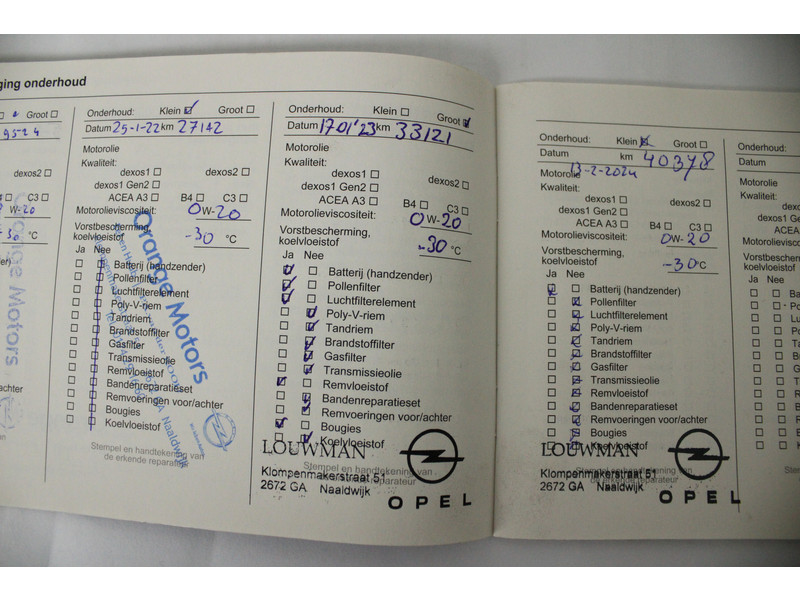 ging onderhoud
Groot
9524
W-20
°C
C3
achter
Orange Motors
Onderhoud: Klein Groot
Datum 25-1-22 km 27142
Motorolie
Kwaliteit:
dexos1 dexos2
dexos1 Gen2
ACEA A3 B4 C3
Motorolieviscositeit: 0W-20
Vorstbescherming,
koelvloeistof -30 °C
Ja Nee
Batterij (handzender)
Pollenfilter
Luchtfilterelement
Poly-V-riem
Tandriem
Brandstoffilter
Gasfilter
Transmissieolie
Remvloeistof
Bandenreparatieset
Remvoeringen voor/achter
Bougies
Koelvloeistof
Stempel en handtekening van
de erkende reparateur
Orange Motors
Naaldwijk
Onderhoud: Klein Groot
Datum 17 01 '23 km 33121
Motorolie
Kwaliteit:
dexos1 dexos2
dexos1 Gen2
ACEA A3 B4 C3
Motorolieviscositeit: 0W-20
Vorstbescherming,
koelvloeistof -30 °C
Ja Nee
Batterij (handzender)
Pollenfilter
Luchtfilterelement
Poly-V-riem
Tandriem
Brandstoffilter
Gasfilter
Transmissieolie
Remvloeistof
Bandenreparatieset
Remvoeringen voor/achter
Bougies
Koelvloeistof
Stempel en handtekening van
reparateur
LOUWMAN
Klompenmakerstraat 51
2672 GA Naaldwijk
OPEL
Onderhoud: Klein Groot
Datum km 40378
Motorolie 13-2-2024
Kwaliteit:
dexos1 dexos2
dexos1 Gen2
ACEA A3 B4 C3
Motorolieviscositeit: 0W-20
Vorstbescherming,
koelvloeistof -30 °C
Ja Nee
Batterij (handzender)
Pollenfilter
Luchtfilterelement
Poly-V-riem
Tandriem
Brandstoffilter
Gasfilter
Transmissieolie
Remvloeistof
Bandenreparatieset
Remvoeringen voor/achter
Bougies
Koelvloeistof
Stempel en handtekening van
de erkende reparateur
LOUWMAN
Klompenmakerstraat 51
2672 GA Naaldwijk
OPEL
Onderhoud:
Datum
Motorolie
Kwaliteit:
dexos1
dexos1 Gen2
ACEA A3
Motorolieviscositeit
Vorstbescherming
koelvloeistof
Ja Nee